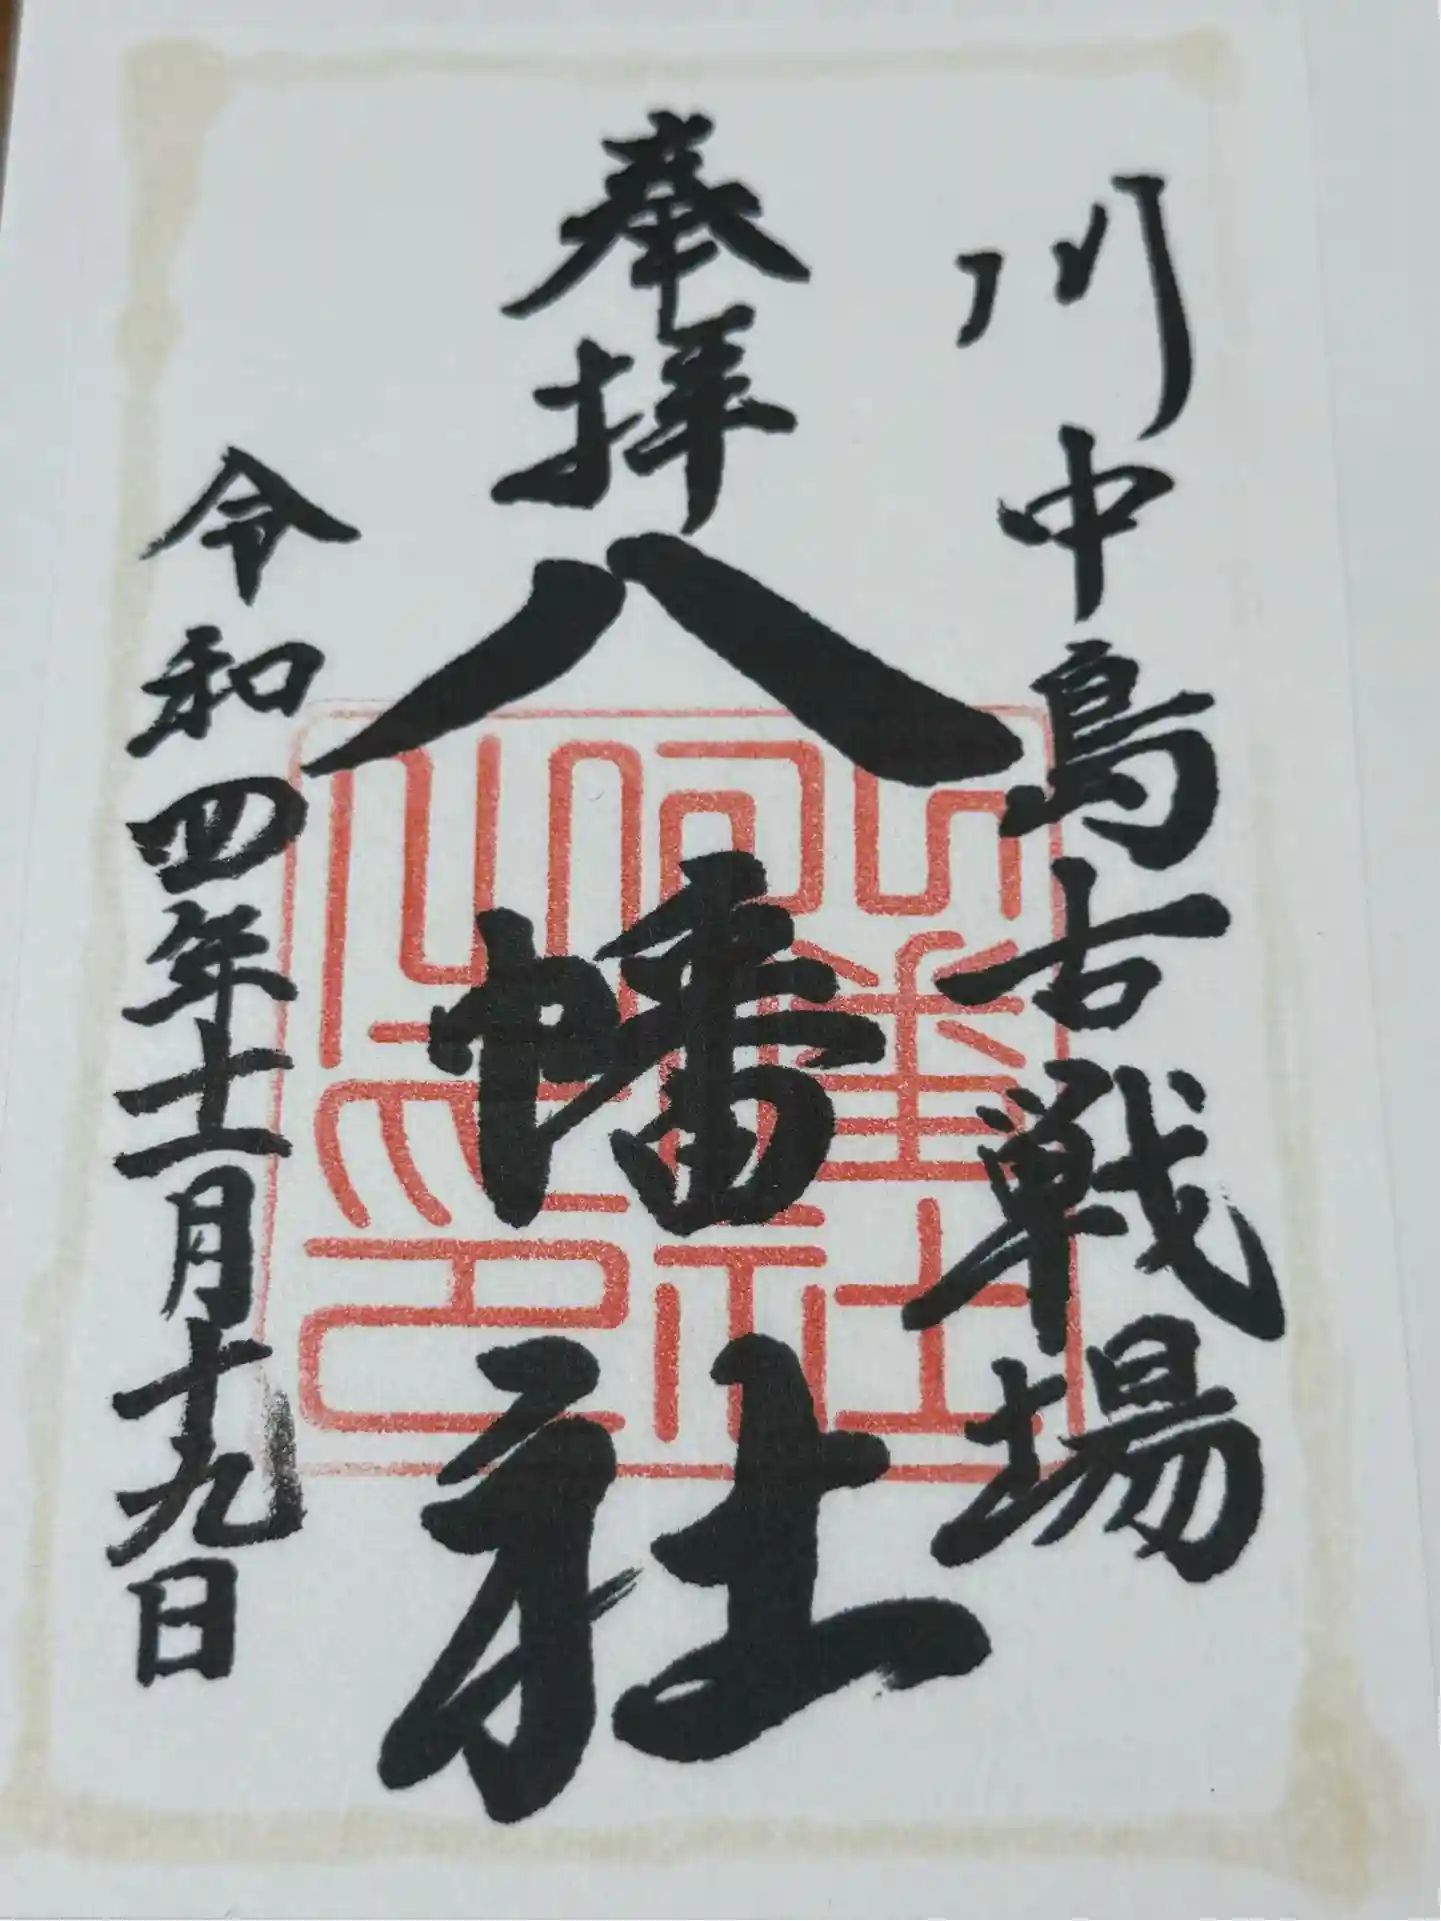 川中島古戦場
奉拝
八幡社
令和四年十一月十九日